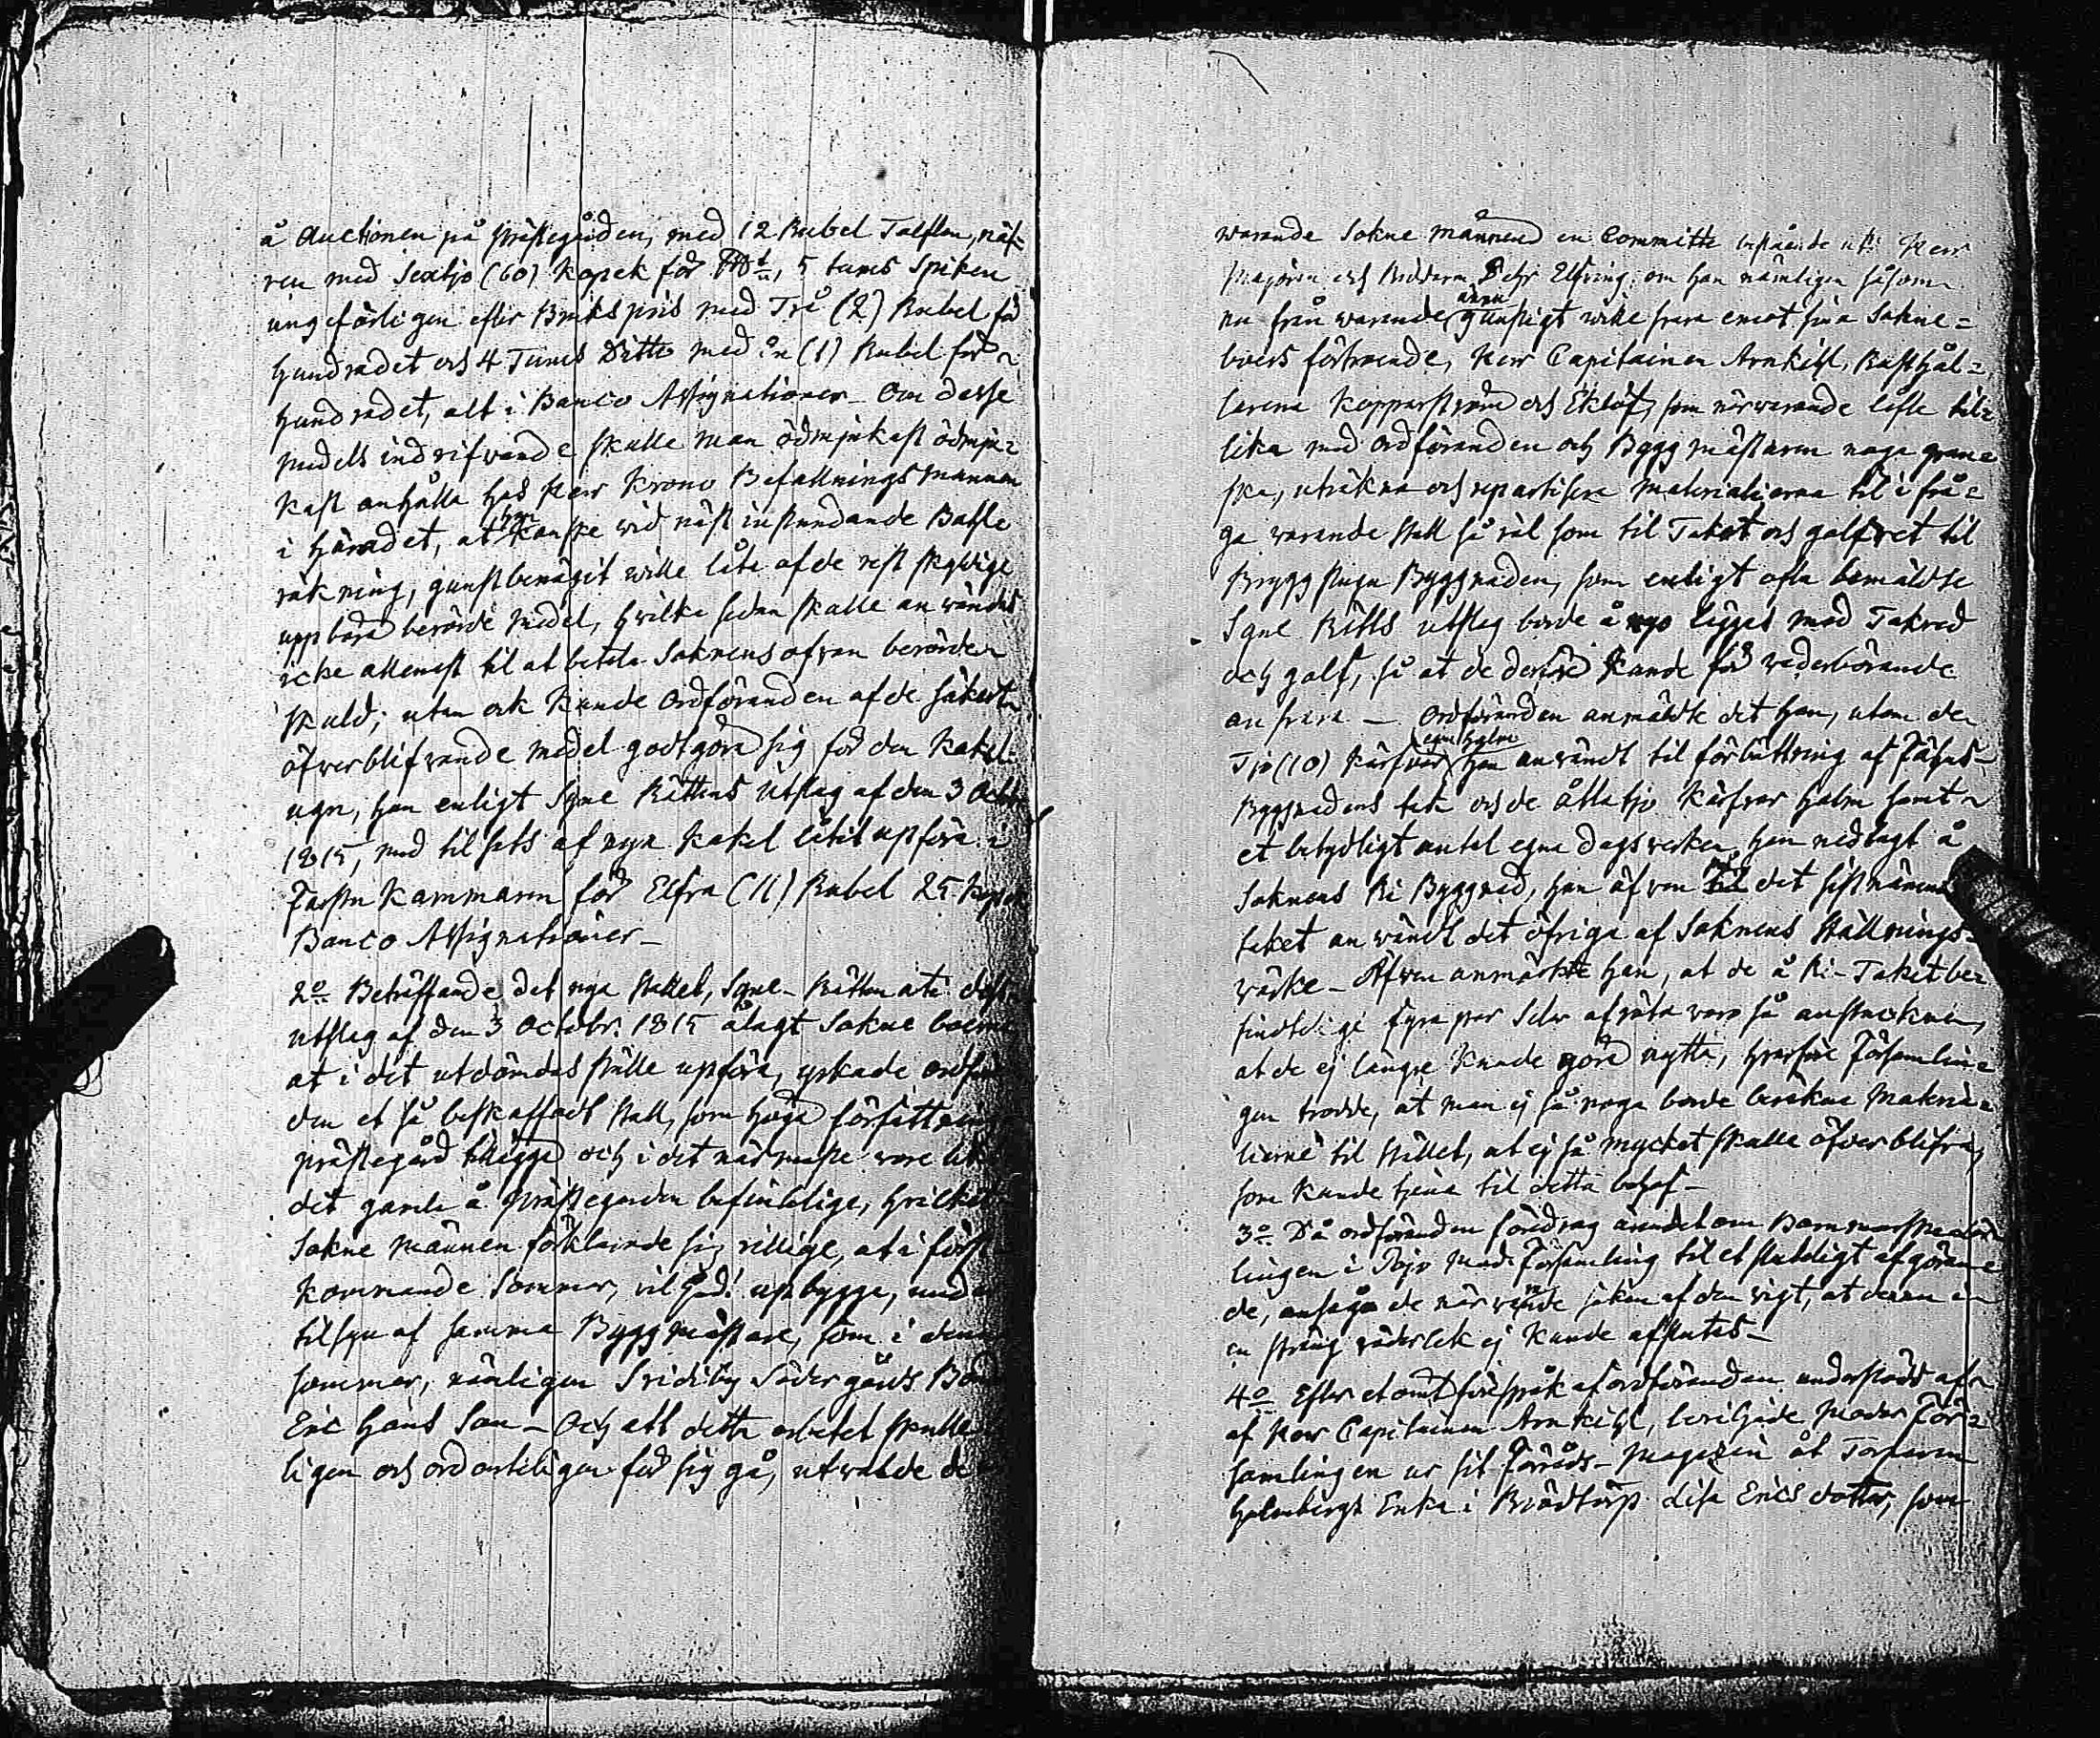 å Auctionen på Prästegården, med 12 Rubel Tolften, näf-
ren med Sextjo (60) Kopek för, 5 tums Spiken
ungefärligen efter Bruks pris med Två (2) Rubel för
hundradet och 4 Tums Ditto med en (1) Rubel för
hundradet, alt i Banco Assignationer_ Om desse
medels indrifvande skulle man ödmjukast ödmju=
kast anhålla hos Herr Krono Befallningsmannen
i Häradet, at han kanske vid näst instundande Bohle
räkning, gunstbenägit wille låta af de rest skyldige
uppbära berörde medel, hvilka sedan skulle användas
icke allenast til at betala Soknens ofvan berörde
skuld; utan ock kunde Ordföranden af de säkert
öfverblifvande medel godtgöra sig för den Kakel-
ugn, han enligt Syne Rättens Utslag af den 3 Octobr
1815, med tilsats af nya Kakel låtit upföra i
Farstu Kammarn för Elfva (11) Rubel 25 Kopek
Banco Assignationer_
2o. Beträffande det nya Stallet, Syne-Rätten uti dess
utslag af den 3 Octobr. 1815 ålagt Sokne boerne
at i det utdömdas ställe upföra, yrkade ordföran
den et så beskaffadt Stall, som höga författnin
prästegård tillägga och i det närmaste vore lik
det gamla å Prästegården befinteliga, hvilket
Sokne Männen förklarade sig villige, at i först
kommande Sommar, vil Gud! upbygga, under
tilsyn af samma Byggmästare, som i denna
sommar, nämligen Sridiby Södergårds Bond
Eric Hans Son_ Och att detta arbetet skulle
ligen och ordenteligen för sig gå, utvalde de
varande Sokne männend en Committe bestående uti Herr
Majoren och Riddaren Elfving; om han nämligen såsom
nu från warande ännu gunstigt wille svara emot sina Sokne=
boers förtroende, Herr Capitainen Arnkihl, Rusthål=
larena Kopparström och Eklöf, som närvarande lofte til=
lika med Ordföranden och Byggmästaren noga grans=
ska, uträkna och repartisera Materialierna til i frå=
ga varande Stall så väl som til Taket och golfvet til
Bryggstugu Byggnaden, som enligt ofta bemäldte
Syne Rätts utslag borde å nyo läggas med Takved
och golf, så at de derföre kunde för vederbörande
ansvara _ Ordföranden anmäldte det han, utom de
Tjo (10) kärfvar egen halm han användt til förbättring af Fähus-
Byggnadens tak och de åttatjo Kärfvar halm samt
et betydligt antal egna dagsverken, han nedlagt å
Soknens Ri Byggnad, han äfven på det sistnämnde
taket användt det öfriga af Soknens Ställnings=
virke_ Äfven anmärkte han, at de å Ri-Taket be=
findtelige fyra par Selar af röta voro så anstuckne,
at de ej längre kunde göra nytta, hvarföre Församlin=
gen trodde, at man ej så noga borde beräkna Materia=
lierne til Stallet, at ej så mycket skulle öfverblifva,
som kunde tjena til detta behof_
3o. Då ordföranden föredrog ämnet om Barnmorske
lingen i Pojo Moder Församling til et slutligt afgöran=
de, ansågo de närvarande saken af den vigt, at denna
en sträng väderlek ej kunde afslutas_
4o Efter et ömt förespråk af ordföranden understödt af
af Herr Capitainen Arnkihl, beviljade Moder För=
samlingen ur sit Förråds-Magazin åt Torparen
Holmbergs Enka i Brödtorp Lisa Erics dotter, som